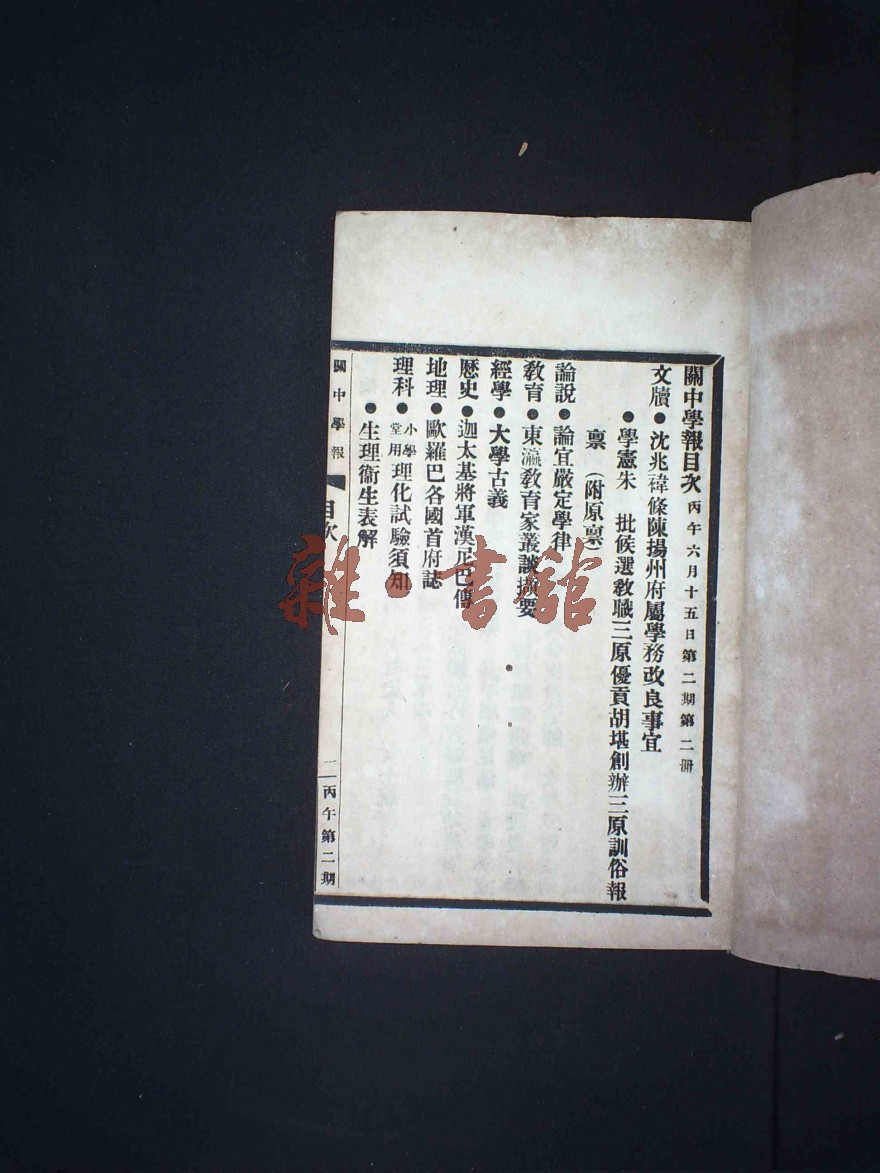 關中學報目次 丙午六月十五日第二期第二册
文牘●沈兆禕條陳揚州府屬學務改良事宜
●學憲朱　批候選教職三原優貢胡堪創辦三原訓俗報
稟（附原稟）
論說●論宜嚴定學律
教育●東瀛教育家叢談撰要
經學●大學古義
歷史●迦太基將軍漢尼巴傳
地理●歐羅巴各國首府誌
理科●小學堂用理化試驗須知
●生理衞生表解
關中學報
目次
二
丙午第二期
雜·書館